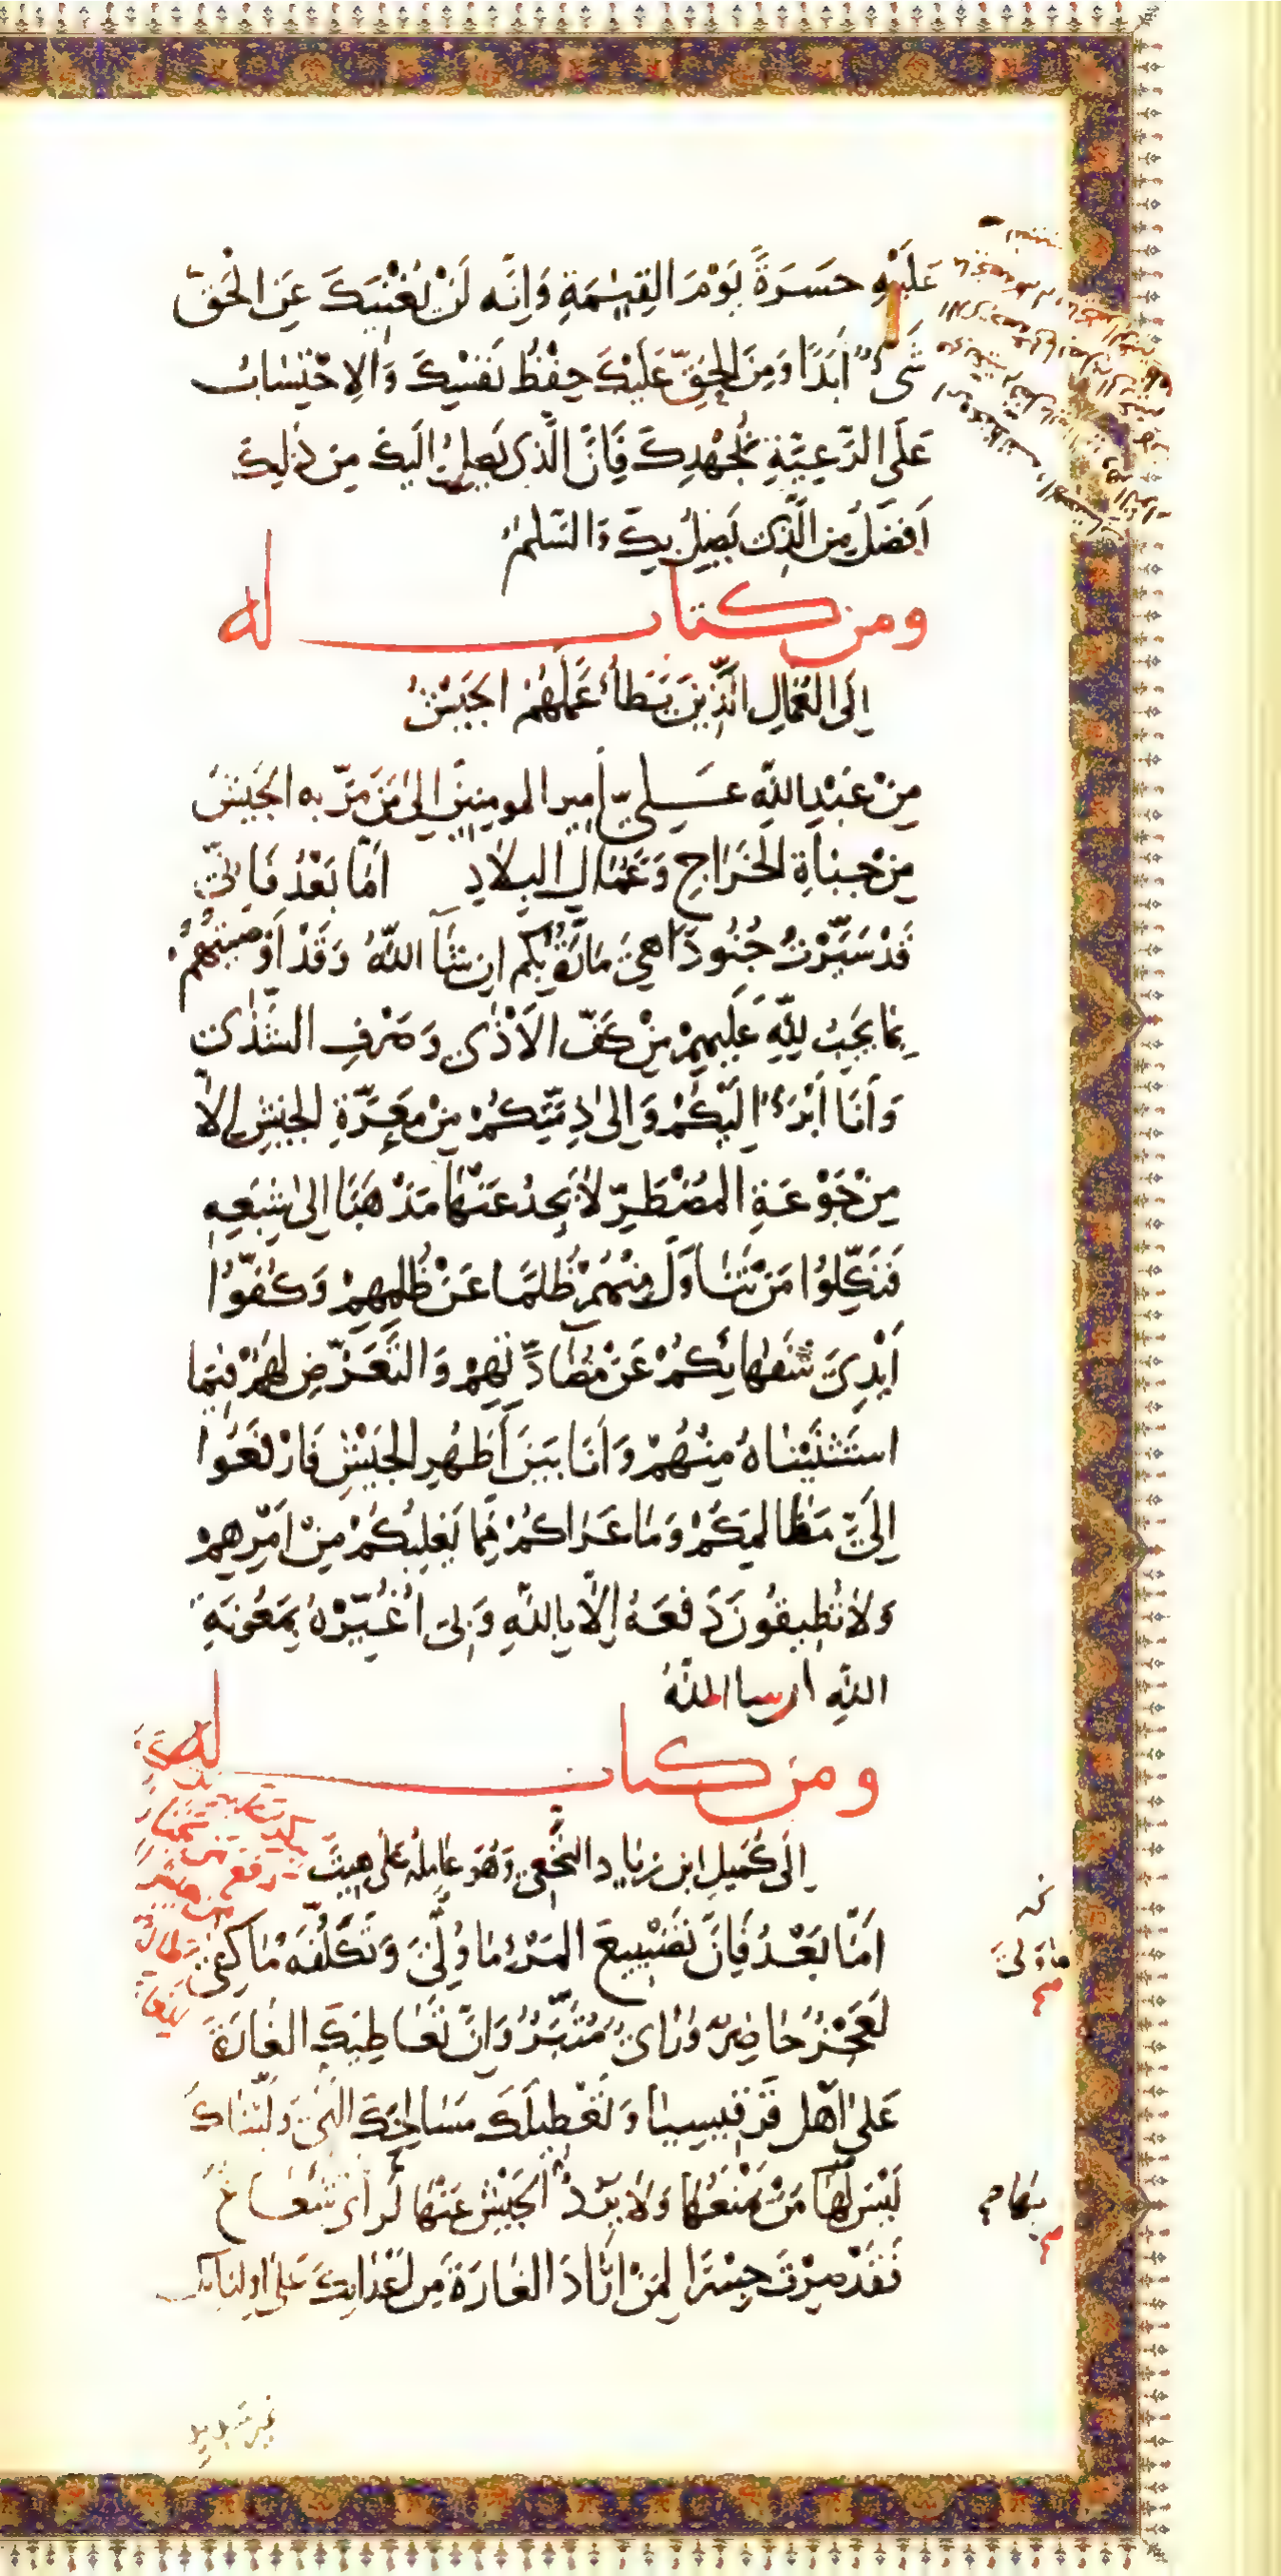 عَلَيْهِ حَسَرَةً يَوْمَ القِيٰمَةِ وَاِنَّه لَنْ يُغْنِيَكَ عَنِ الْحَقِّ
شَىْءٌ اَبَدًا وَمِنَ الحَقِّ عَلَيْكَ حِفْظُ نَفْسِكَ وَالاِحْتِسَابُ
عَلَى الرَّعِيَّةِ بِجُهْدِكَ فَاِنَّ الَّذِى يَصِلُ اِلَيكَ مِن ذٰلِكَ
اَفضَلُ مِنَ الَّذِى يَصِلُ بِكَ وَالسَّلٰمُ
ومن كتاب له
اِلَى العُمَّالِ الَّذِينَ يَطَأُ عَمَلَهُمْ الجَيْشُ
مِنْ عَبْدِ اللّٰهِ عَلِيٍّ اَمِيرِ المومِنِينَ اِلىٰ مَنْ مَرَّ به الجَيْشُ
مِنْ جُبَاةِ الخَرَاجِ وَعُمَّالِ البِلاَدِ اَمَّا بَعْدُ فَاِنِّى
قَدْ سَيَّرْتُ جُنُودًا هِىَ مَارَّةٌ بِكم اِن شَآءَ اللّٰهُ وَقَدْ اَوْصَيْتُهُمْ
بِمَا يَجِبُ لِلّٰهِ عَلَيهِمْ مِنْ كَفِّ الاَذٰى وَصَرْفِ الشَّذٰى
وَاَنَا اَبْرَءُ اِلَيْكُمْ وَاِلىٰ ذِمَّتِكُمْ مِنْ مَعَرَّةِ الجَيْشِ اِلاَّ
مِنْ جَوْعَةِ المُضْطَرِّ لاَ يَجِدُ عَنْهَا مَذْهَبًا اِلىٰ شِبَعِهِ
فَنَكِّلُوا مَنْ تَنَاوَلَ مِنْهُمْ ظُلمًا عَنْ ظُلمِهِمْ وَكُفُّوا
اَيْدِىَ سُفَهَائِكُمْ عَنْ مُضَادَّتِهِمْ وَالتَّعَرُّضِ لَهُمْ فِيمَا
استَثنَيْنَاهُ مِنْهُمْ وَاَنَا بَيْنَ اَظهُرِ الجَيْشِ فَارْفَعُوا
اِلَىَّ مَظَالِمَكُمْ وَمَا عَرَاكُمْ مِمَّا يَغلِبُكُمْ مِنْ اَمْرِهِمْ
وَلاَ تُطِيقُونَ دَفعَهُ اِلَّا بِاللّٰهِ وَبِى اُغَيِّرْهُ بِمَعُونَةِ
اللّٰهِ اِن شا اللّٰهُ
ومن كتاب له
اِلَى كُمَيلِ ابنِ زِيَادٍ النَّخَعِيّ وَهُوَ عَامِلُهُ عَلَى هِيتَ
اَمَّا بَعْدُ فَاِنَّ تَضْيِيعَ المَرْءِ مَا وُلِّىَ وَتَكَلُّفَهُ مَا كُفِىَ
لَعَجْزٌ حَاضِرٌ وَرَاىٌ مُتَبَّرٌ وَاِنَّ تَعَاطِيَكَ الغَارَةَ
عَلىٰ اَهْلِ قَرْقِيسِيَا وَتَعْطِيلَكَ مَسَالِحَكَ الَّتِى وَلَّيْنَاكَ
لَيْسَ لَهَا مَنْ يَمْنَعُهَا وَلاَ يَرُدُّ الجَيْشَ عَنْهَا لَرَاىٌ شَعَاعٌ
فَقَدْ صِرْتَ جِسْرًا لِمَنْ اَرَادَ الغَارَةَ مِن اَعْدَائِكَ عَلىٰ اَولِيَائِكَ
ما وَلِىَ
بها م
غير شديد